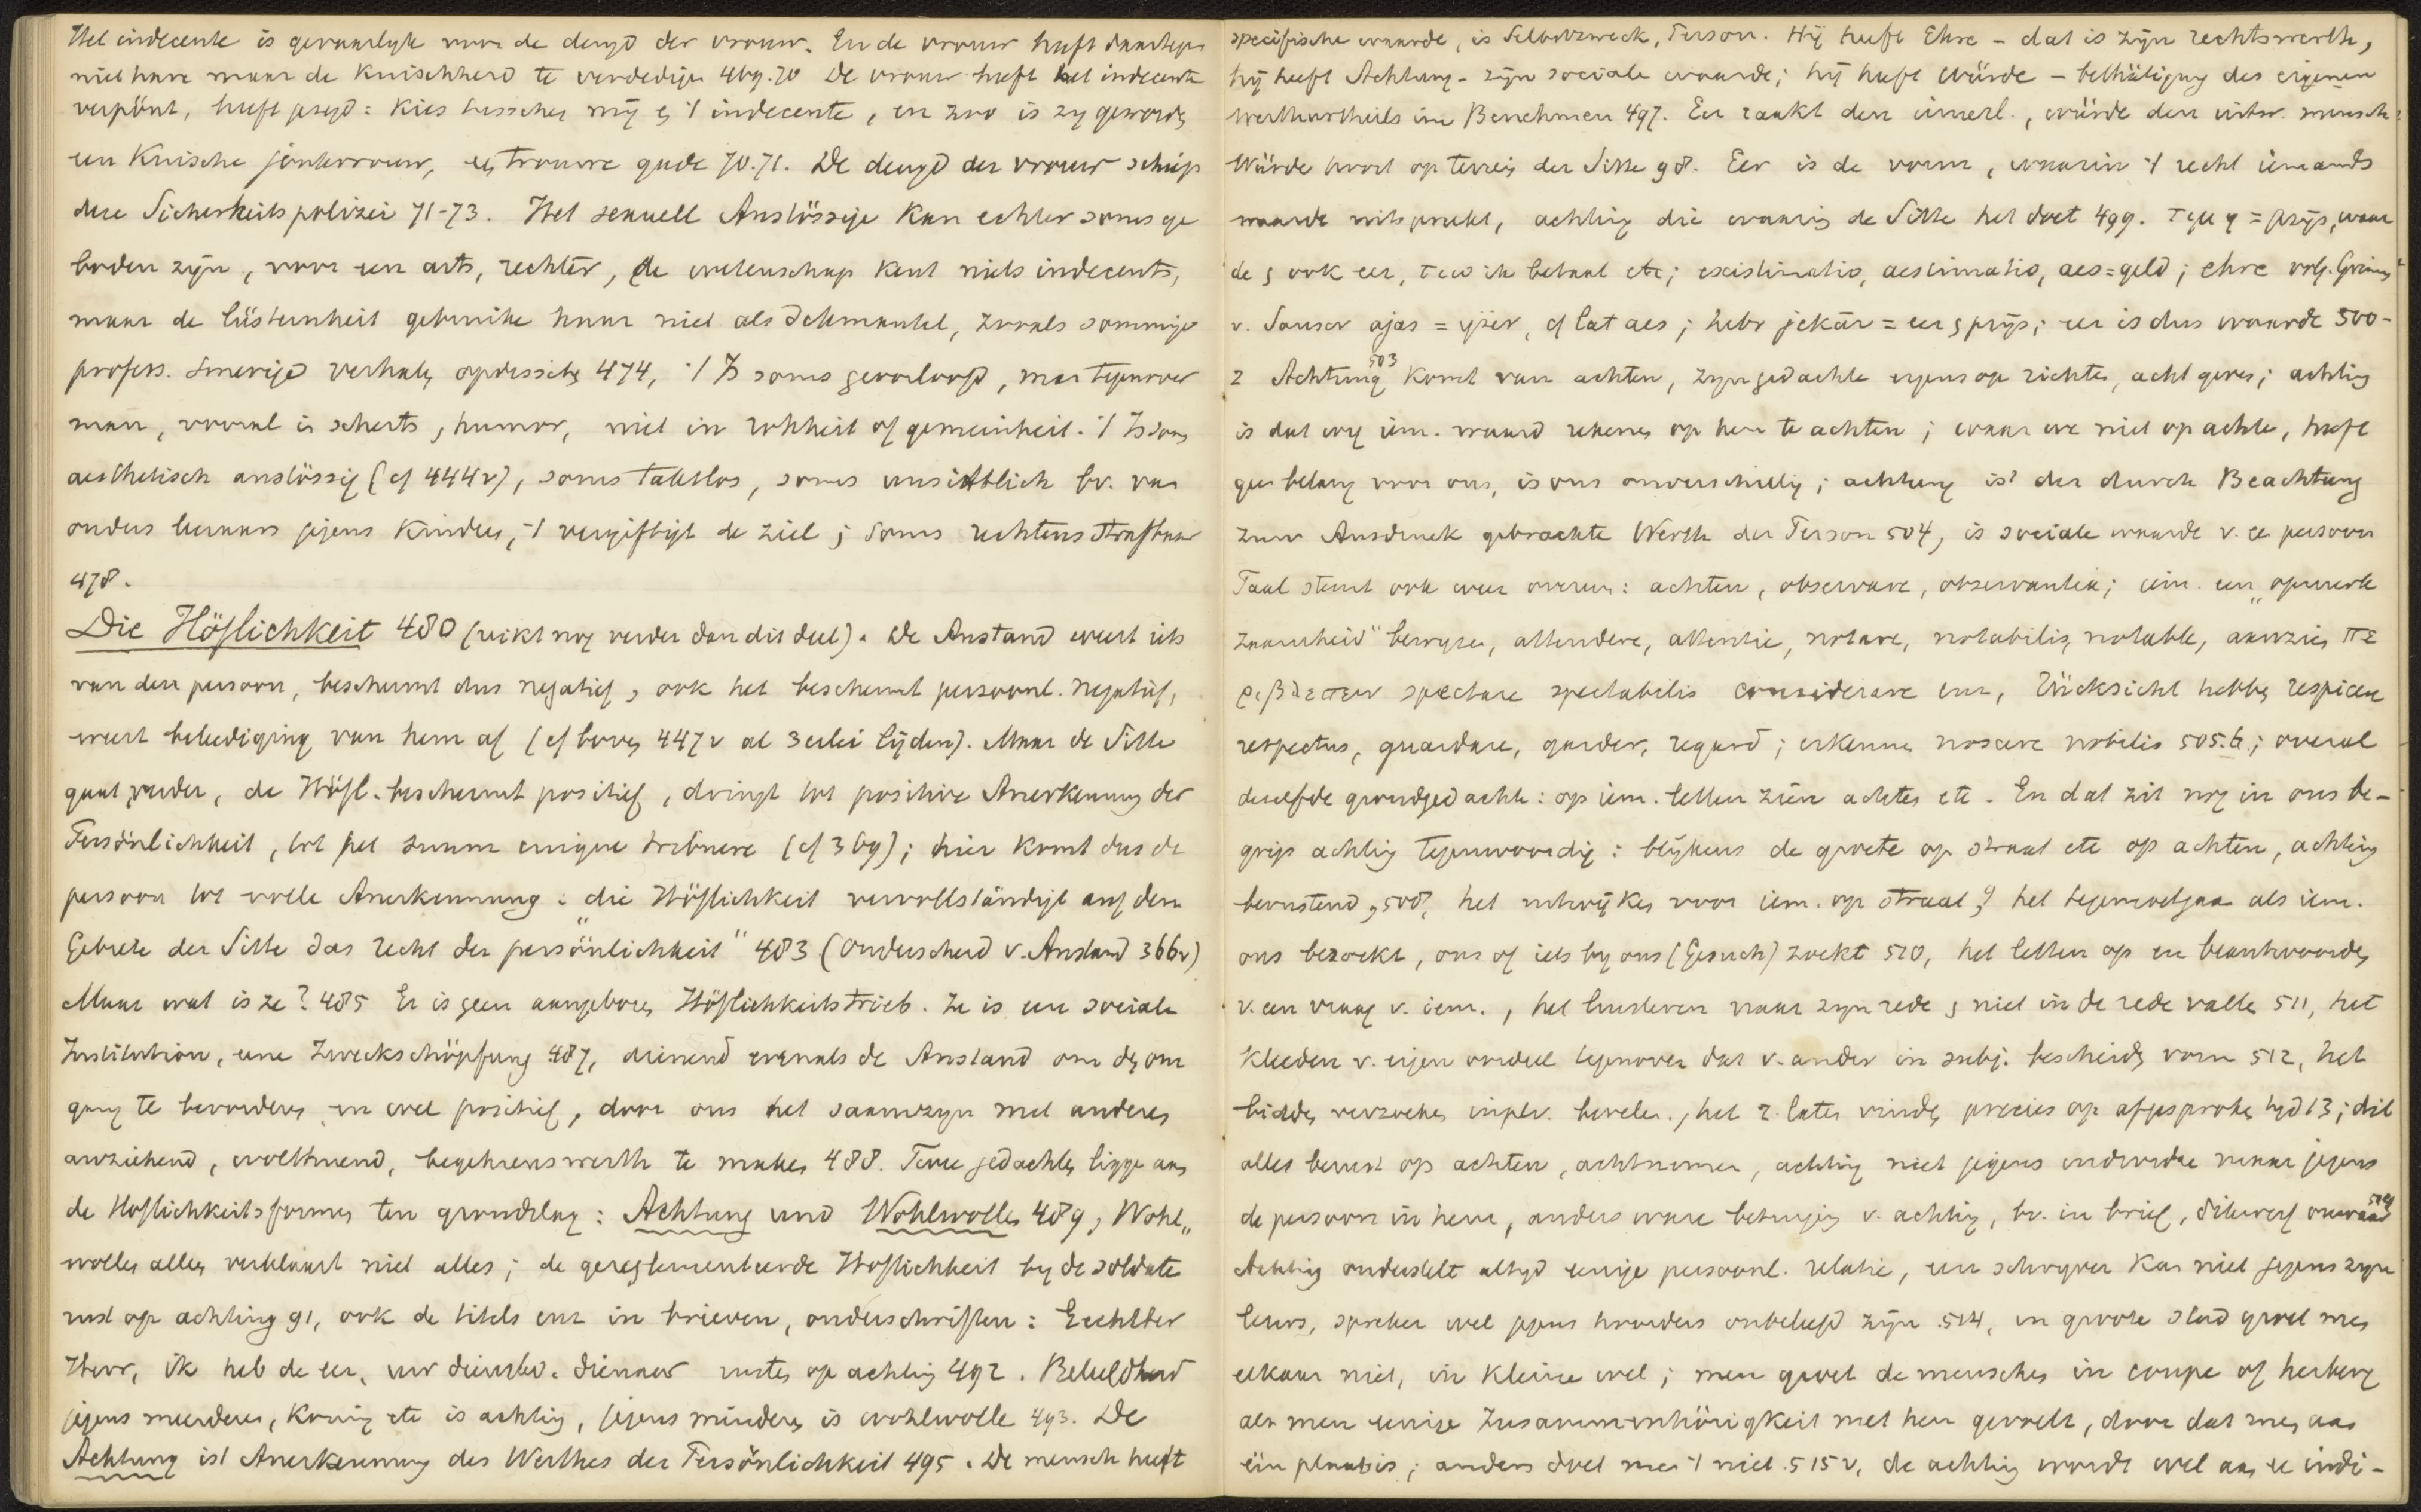 Het indecente is gevaarlyk voor de deugd der vrouw. En de vrouw heeft daartegen
niet hare maar de Keuschheid te verdedigen 469.70 De vrouw heeft het indecente
verpönt, heeft gezegd: Kies tusschen mij en 't indecente, en zoo is zy geworden
een Kuische jonkvrouw, en trouwe gade 70.71. De deugd der vrouw schiep
deze Sicherheitspolizei 71-73. Het sexuell Anstössige kan echter soms ge
boden zijn, voor een arts, rechter, de wetenschap kent niets indecents,
maar de lüsternheit gebruike haar niet als dekmantel, zooals sommige
profess. smerige verhalen opdisschen 474, 't Is soms geoorloofd, man tegenover
man, vooral in scherts, humor, niet in rohheit of gemeinheit. 't Is soms
aesthetisch anstössig (cf 444v), soms taktlos, soms unsittlich bv. van
ouders leeraars jegens Kinderen, 't vergiftigt de ziel; soms rechtens strafbaar
478.
Die Höflichkeit 480 (reikt nog verder dan dit deel). De Anstand weert iets
van den persoon, beschermt dus negatief, ook het beschermt persoonl. negatief,
weert beleediging van hem af (cf boven 447v al 3erlei lijden). Maar de Sitte
gaat verder, de Höfl. beschermt positief, dringt tot positive Anerkennung der
Persönlichkeit, tot het suum cuique tribuere (cf 369); hier komt dus de
persoon tot volle Anerkennung: „die Höflichkeit vervollständigt auf dem
Gebiete der Sitte das recht der persönlichkeit" 483 (onderscheid v. Anstand 366v)
Maar wat is ze? 485 Er is geen aangeboren Höflichkeitstrieb. Ze is een sociale
Institution, eine Zweckschöpfung 487, dienend evenals de Anstand om den om
gang te bevorderen en wel positief, door ons het saamzyn met anderen
anziehend, wolthuend, begehrenswerth te maken 488. Twee gedachten liggen aan
de Höflichkeitsformen ten grondslag: Achtung und Wohlwollen 489, Wohl„
wollen alleen verklaart niet alles; de gereglementeerde Höflichkeit by de soldaten
rust op achting 91, ook de titels enz in brieven, onderschriften: Geachter
Heer, ik heb de eer, uw dienstw. dienaar rusten op achting 492. Beleefdheid
jegens meerderen, Koning etc is achting, jegens minderen is wohlwollen 493. De
Achtung ist Anerkennung des Werthes der Persönlichkeit 495. De mensch heeft
specifische waarde, is Selbstzweck, Person. Hij heeft Ehre - dat is zijn rechtswerth,
hij heeft Achtung - zijn sociale waarde; hij heeft Würde - bethätigung des eigenen
werthurtheils im Benehmen 497. Eer raakt den innerl., würde den uitw. mensch
Würde hoort op terrein der Sitte 98. Eer is de vorm, waarin 't recht iemands
waarde uitspreekt, achting die waarin de Sitte het doet 499. τιμη = prijs, waar
de en ook eer, τιω ik betaal etc; existimatio, aestimatio, aes = geld; ehre vlg. Grimm
v. Sanscr ajas = ijzer, cf lat aes; hebr jekar = eer en prijs; eer is dus waarde 500-
2 Achtung 503 komt van achten, zyn gedachte ergens op richten, acht geven; achting
is dat wy iem. waard rekenen op hem te achten; waar we niet op achten, heeft
geen belang voor ons, is ons onverschillig; achtung ist der durch Beachtung
zum Ausdruck gebrachte Werth der Person 504, is sociale waarde v. de persoon
Taal stemt ook weer overeen: achten, observare, observantia; iem. een „opmerk
zaamheid" bewyzen, attendere, attentie, notare, notabilis, notable, aanzien πε
ριβλεπειν spectare spectabilis considerare enz, Rücksicht hebben respicere
respectus, guardare, garder, regard; erkennen noscere nobilis 505.6; overal
dezelfde grondgedachte: op iem. letten zien achten etc. En dat zit nog in ons be-
grip achting tegenwoordig: blijkens de groete op straat etc op achten, achting
berustend, 508, het uitwijken voor iem. op straat 9 het tegemoetgaan als iem.
ons bezoekt, ons of iets by ons (Gesuch) zoekt 510, het letten op en beantwoorden
v. een vraag v. iem., het luisteren naar zyn rede en niet in de rede vallen 511, het
Kleeden v. eigen oordeel tegenover dat v. ander in subj. bescheiden vorm 512, het
bidden verzoeken inplv. bevelen., het z. laten vinden precies op afgesproken tyd 13; dit
alles berust op achten, achtnemen, achting niet jegens individu maar jegens
de persoon in hem, anders ware betuiging v. achting, bv. in brief, dikwerf onwaar 514
Achting onderstelt altyd eenige persoonl. relatie, een schryver kan niet jegens zyn
lezers, spreker wel jegens hoorders onbeleefd zijn 514, in groote stad groet men
elkaar niet, in kleine wel; men groet de menschen in coupe of herberg
als men eenige Zusammenhörigkeit met hen gevoelt, door dat men aan
één plaats is; anders doet men 't niet 515v, de achting wordt wel aan de indi-